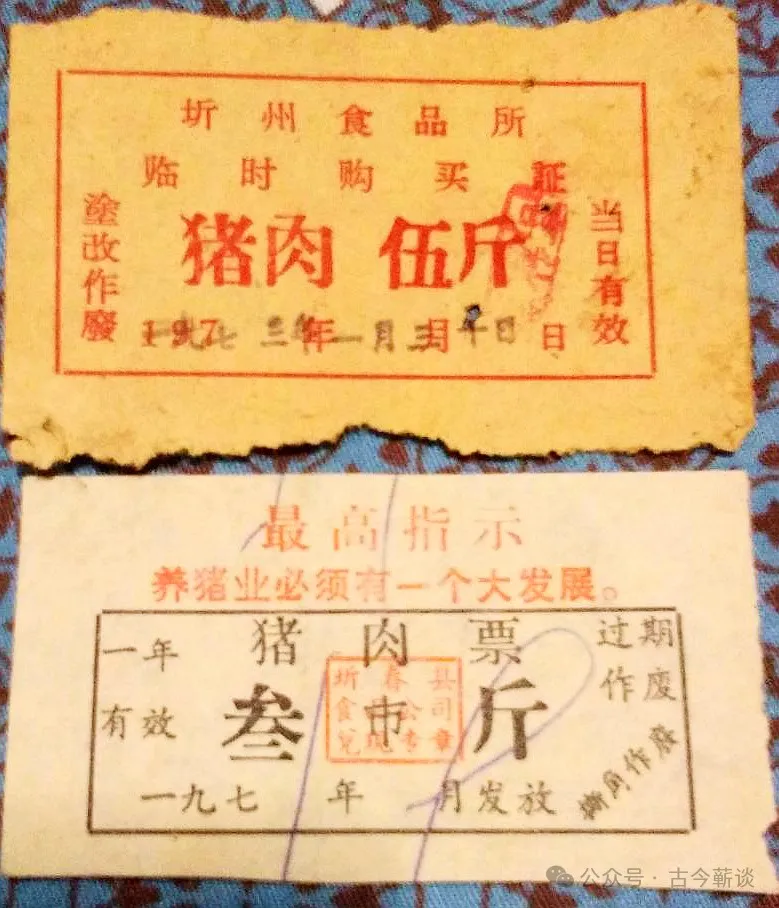 圻州食品所
临时购买证
塗改作廢
猪肉 伍斤
当日有效
197 年 月 日
一九七三年一月三十日
最高指示
养猪业必须有一个大发展。
猪肉票
一年有效
过期作废
叁市斤
圻春县
食品公司
兑现专章
一九七 年 月发放
公众号·古今蕲谈